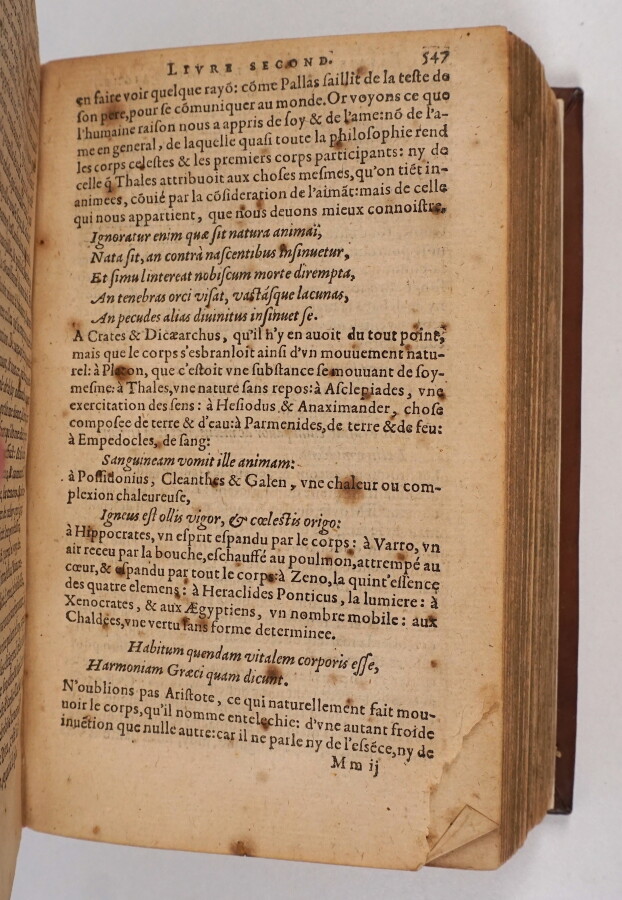 LIVRE SECOND. 547
en faire voir quelque rayõ: cõme Pallas ſaillit de la teſte de
ſon pere, pour ſe cõmuniquer au monde. Or voyons ce que
l'humaine raiſon nous a appris de ſoy & de l'ame: nõ de l'a-
me en general, de laquelle quaſi toute la philoſophie rend
les corps celeſtes & les premiers corps participants: ny de
celle q̃ Thales attribuoit aux choſes meſmes, qu'on tiẽt in-
animees, cõuié par la cõſideration de l'aimãt: mais de celle
qui nous appartient, que nous deuons mieux connoiſtre,
Ignoratur enim quæ ſit natura animaï,
Nata ſit, an contrà naſcentibus inſinuetur,
Et ſimul intereat nobiſcum morte dirempta,
An tenebras orci viſat, vaſtáſque lacunas,
An pecudes alias diuinitus inſinuet ſe.
A Crates & Dicæarchus, qu'il n'y en auoit du tout point,
mais que le corps s'esbranloit ainſi d'vn mouuement natu-
rel: à Platon, que c'eſtoit vne ſubſtance ſe mouuant de ſoy-
meſme: à Thales, vne nature ſans repos: à Aſclepiades, vne
exercitation des ſens: à Heſiodus & Anaximander, choſe
compoſee de terre & d'eau: à Parmenides, de terre & de feu:
à Empedocles, de ſang:
Sanguineam vomit ille animam:
à Poſſidonius, Cleanthes & Galen, vne chaleur ou com-
plexion chaleureuſe,
Igneus eſt ollis vigor, & cœleſtis origo:
à Hippocrates, vn eſprit eſpandu par le corps: à Varro, vn
air receu par la bouche, eſchauffé au poulmon, attrempé au
cœur, & eſpandu par tout le corps: à Zeno, la quint'eſſence
des quatre elemens: à Heraclides Ponticus, la lumiere: à
Xenocrates, & aux Ægyptiens, vn nombre mobile: aux
Chaldées, vne vertu ſans forme determinee.
Habitum quendam vitalem corporis eſſe,
Harmoniam Græci quam dicunt.
N'oublions pas Ariſtote, ce qui naturellement fait mou-
uoir le corps, qu'il nomme entelechie: d'vne autant froide
inuẽtion que nulle autre: car il ne parle ny de l'eſsẽce, ny de
Mm ij